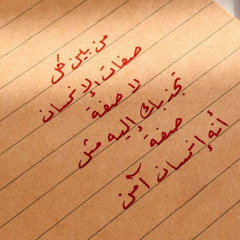 من بين كل
صفات الإنسان
لا صفة
تجذبك إليه مثل
صفة
أنه إنسان آمن